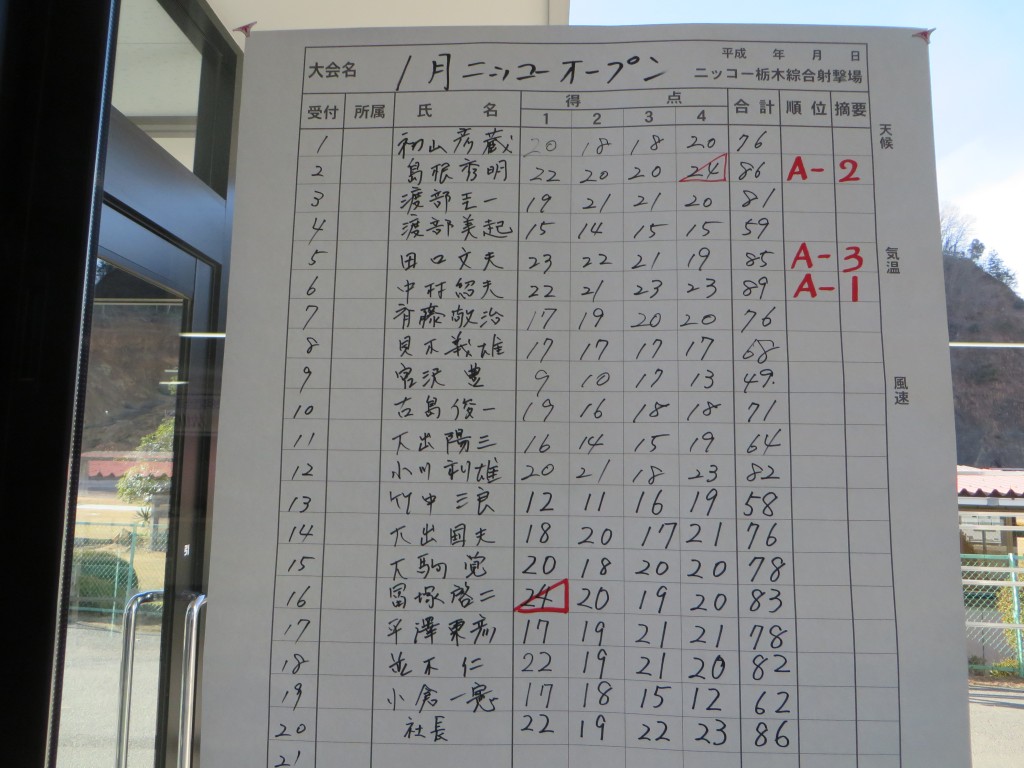 平成 年 月 日
大会名 1月ニッコーオープン ニッコー栃木綜合射撃場
受付 所属 氏名 得点 合計 順位 摘要
1 2 3 4
天候
1 初山彦蔵 20 18 18 20 76
2 島根秀明 22 20 20 24 86 A-2
3 渡部圭一 19 21 21 20 81
4 渡部美起 15 14 15 15 59
5 田口文夫 23 22 21 19 85 A-3
気温
6 中村紹夫 22 21 23 23 89 A-1
7 斉藤敬治 17 19 20 20 76
8 貝木義雄 17 17 17 17 68
9 宮沢豊 9 10 17 13 49.
風速
10 古島俊一 19 16 18 18 71
11 大出陽三 16 14 15 19 64
12 小川利雄 20 21 18 23 82
13 竹中三良 12 11 16 19 58
14 大出国夫 18 20 17 21 76
15 大駒覚 20 18 20 20 78
16 冨塚啓二 24 20 19 20 83
17 平澤東彦 17 19 21 21 78
18 並木仁 22 19 21 20 82
19 小倉一憲 17 18 15 12 62
20 社長 22 19 22 23 86
21